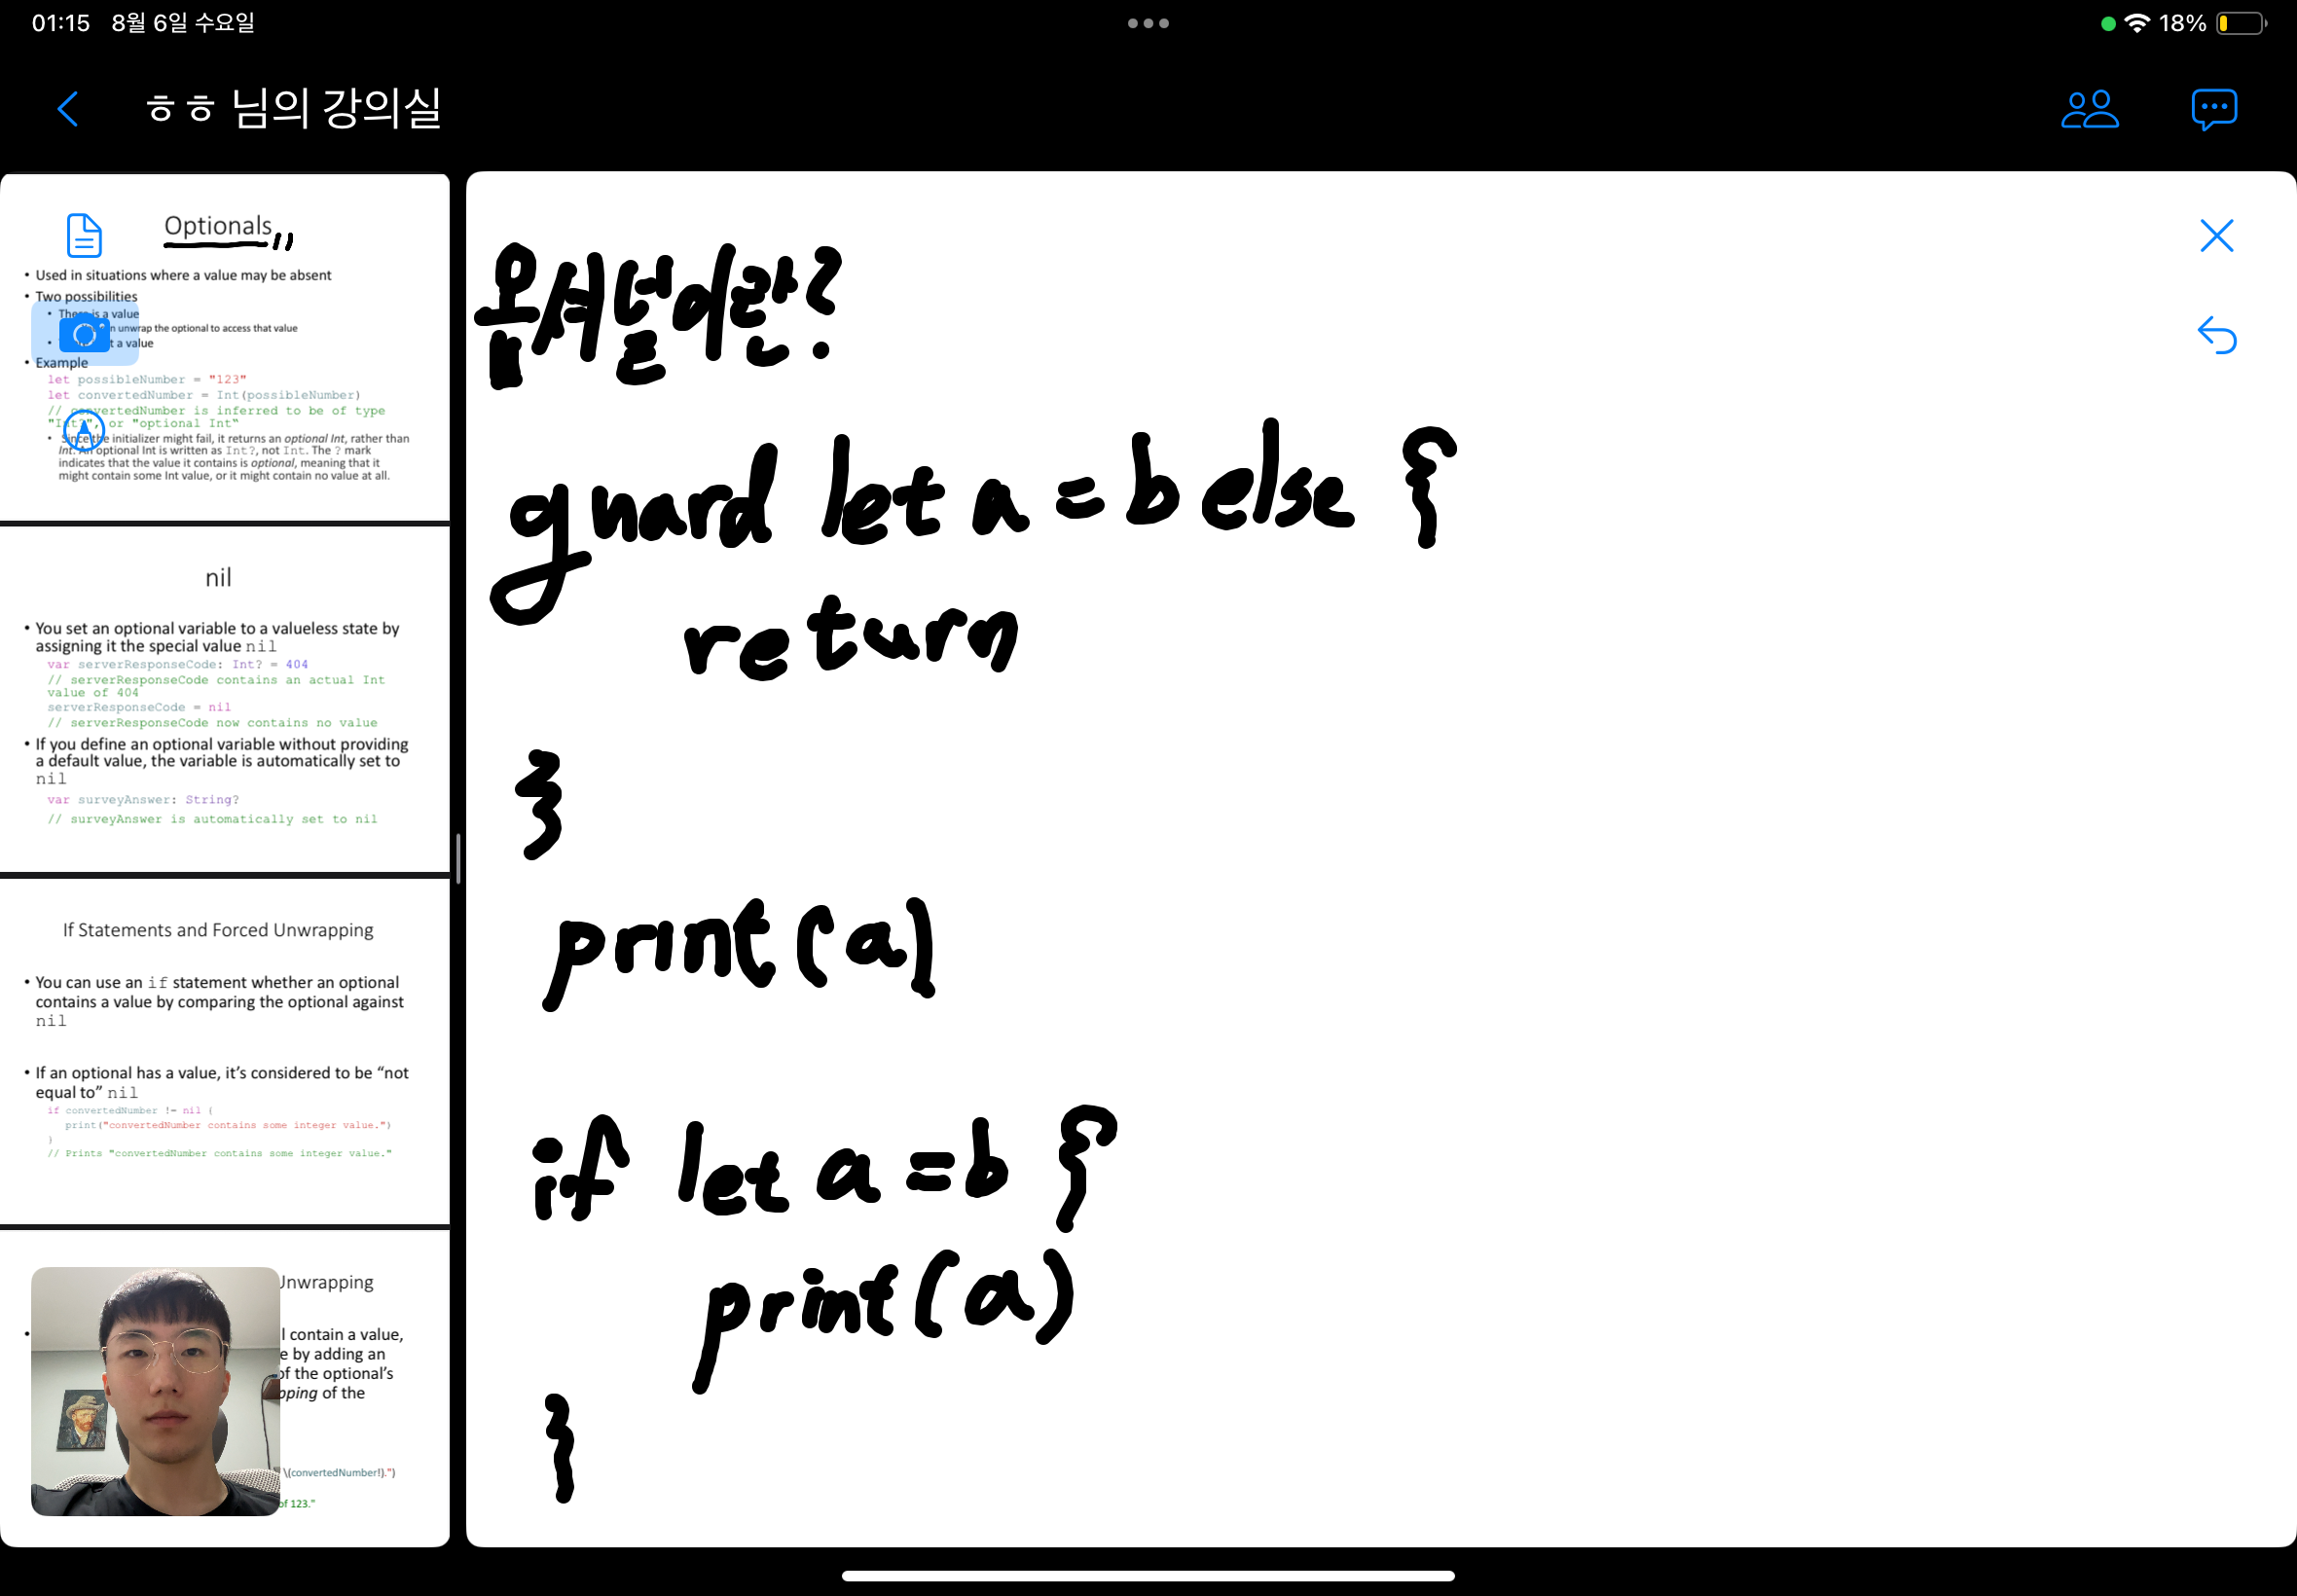 01:15 8월 6일 수요일
18%
ㅎㅎ 님의 강의실
Optionals
• Used in situations where a value may be absent
• Two possibilities
• There is a value
unwrap the optional to access that value
a value
• Example
let possibleNumber = "123"
let convertedNumber = Int(possibleNumber)
// convertedNumber is inferred to be of type
"Int?", or "optional Int"
• Since the initializer might fail, it returns an optional Int, rather than
Int. An optional Int is written as Int?, not Int. The ? mark
indicates that the value it contains is optional, meaning that it
might contain some Int value, or it might contain no value at all.
nil
• You set an optional variable to a valueless state by
assigning it the special value nil
var serverResponseCode: Int? = 404
// serverResponseCode contains an actual Int
value of 404
serverResponseCode = nil
// serverResponseCode now contains no value
• If you define an optional variable without providing
a default value, the variable is automatically set to
nil
var surveyAnswer: String?
// surveyAnswer is automatically set to nil
If Statements and Forced Unwrapping
• You can use an if statement whether an optional
contains a value by comparing the optional against
nil
• If an optional has a value, it’s considered to be “not
equal to” nil
if convertedNumber != nil {
print("convertedNumber contains some integer value.")
}
// Prints "convertedNumber contains some integer value."
Unwrapping
•
contain a value,
by adding an
of the optional’s
of the
\(convertedNumber!).")
of 123."
옵셔널이란?
guard let a = b else {
return
}
print(a)
if let a = b {
print(a)
}